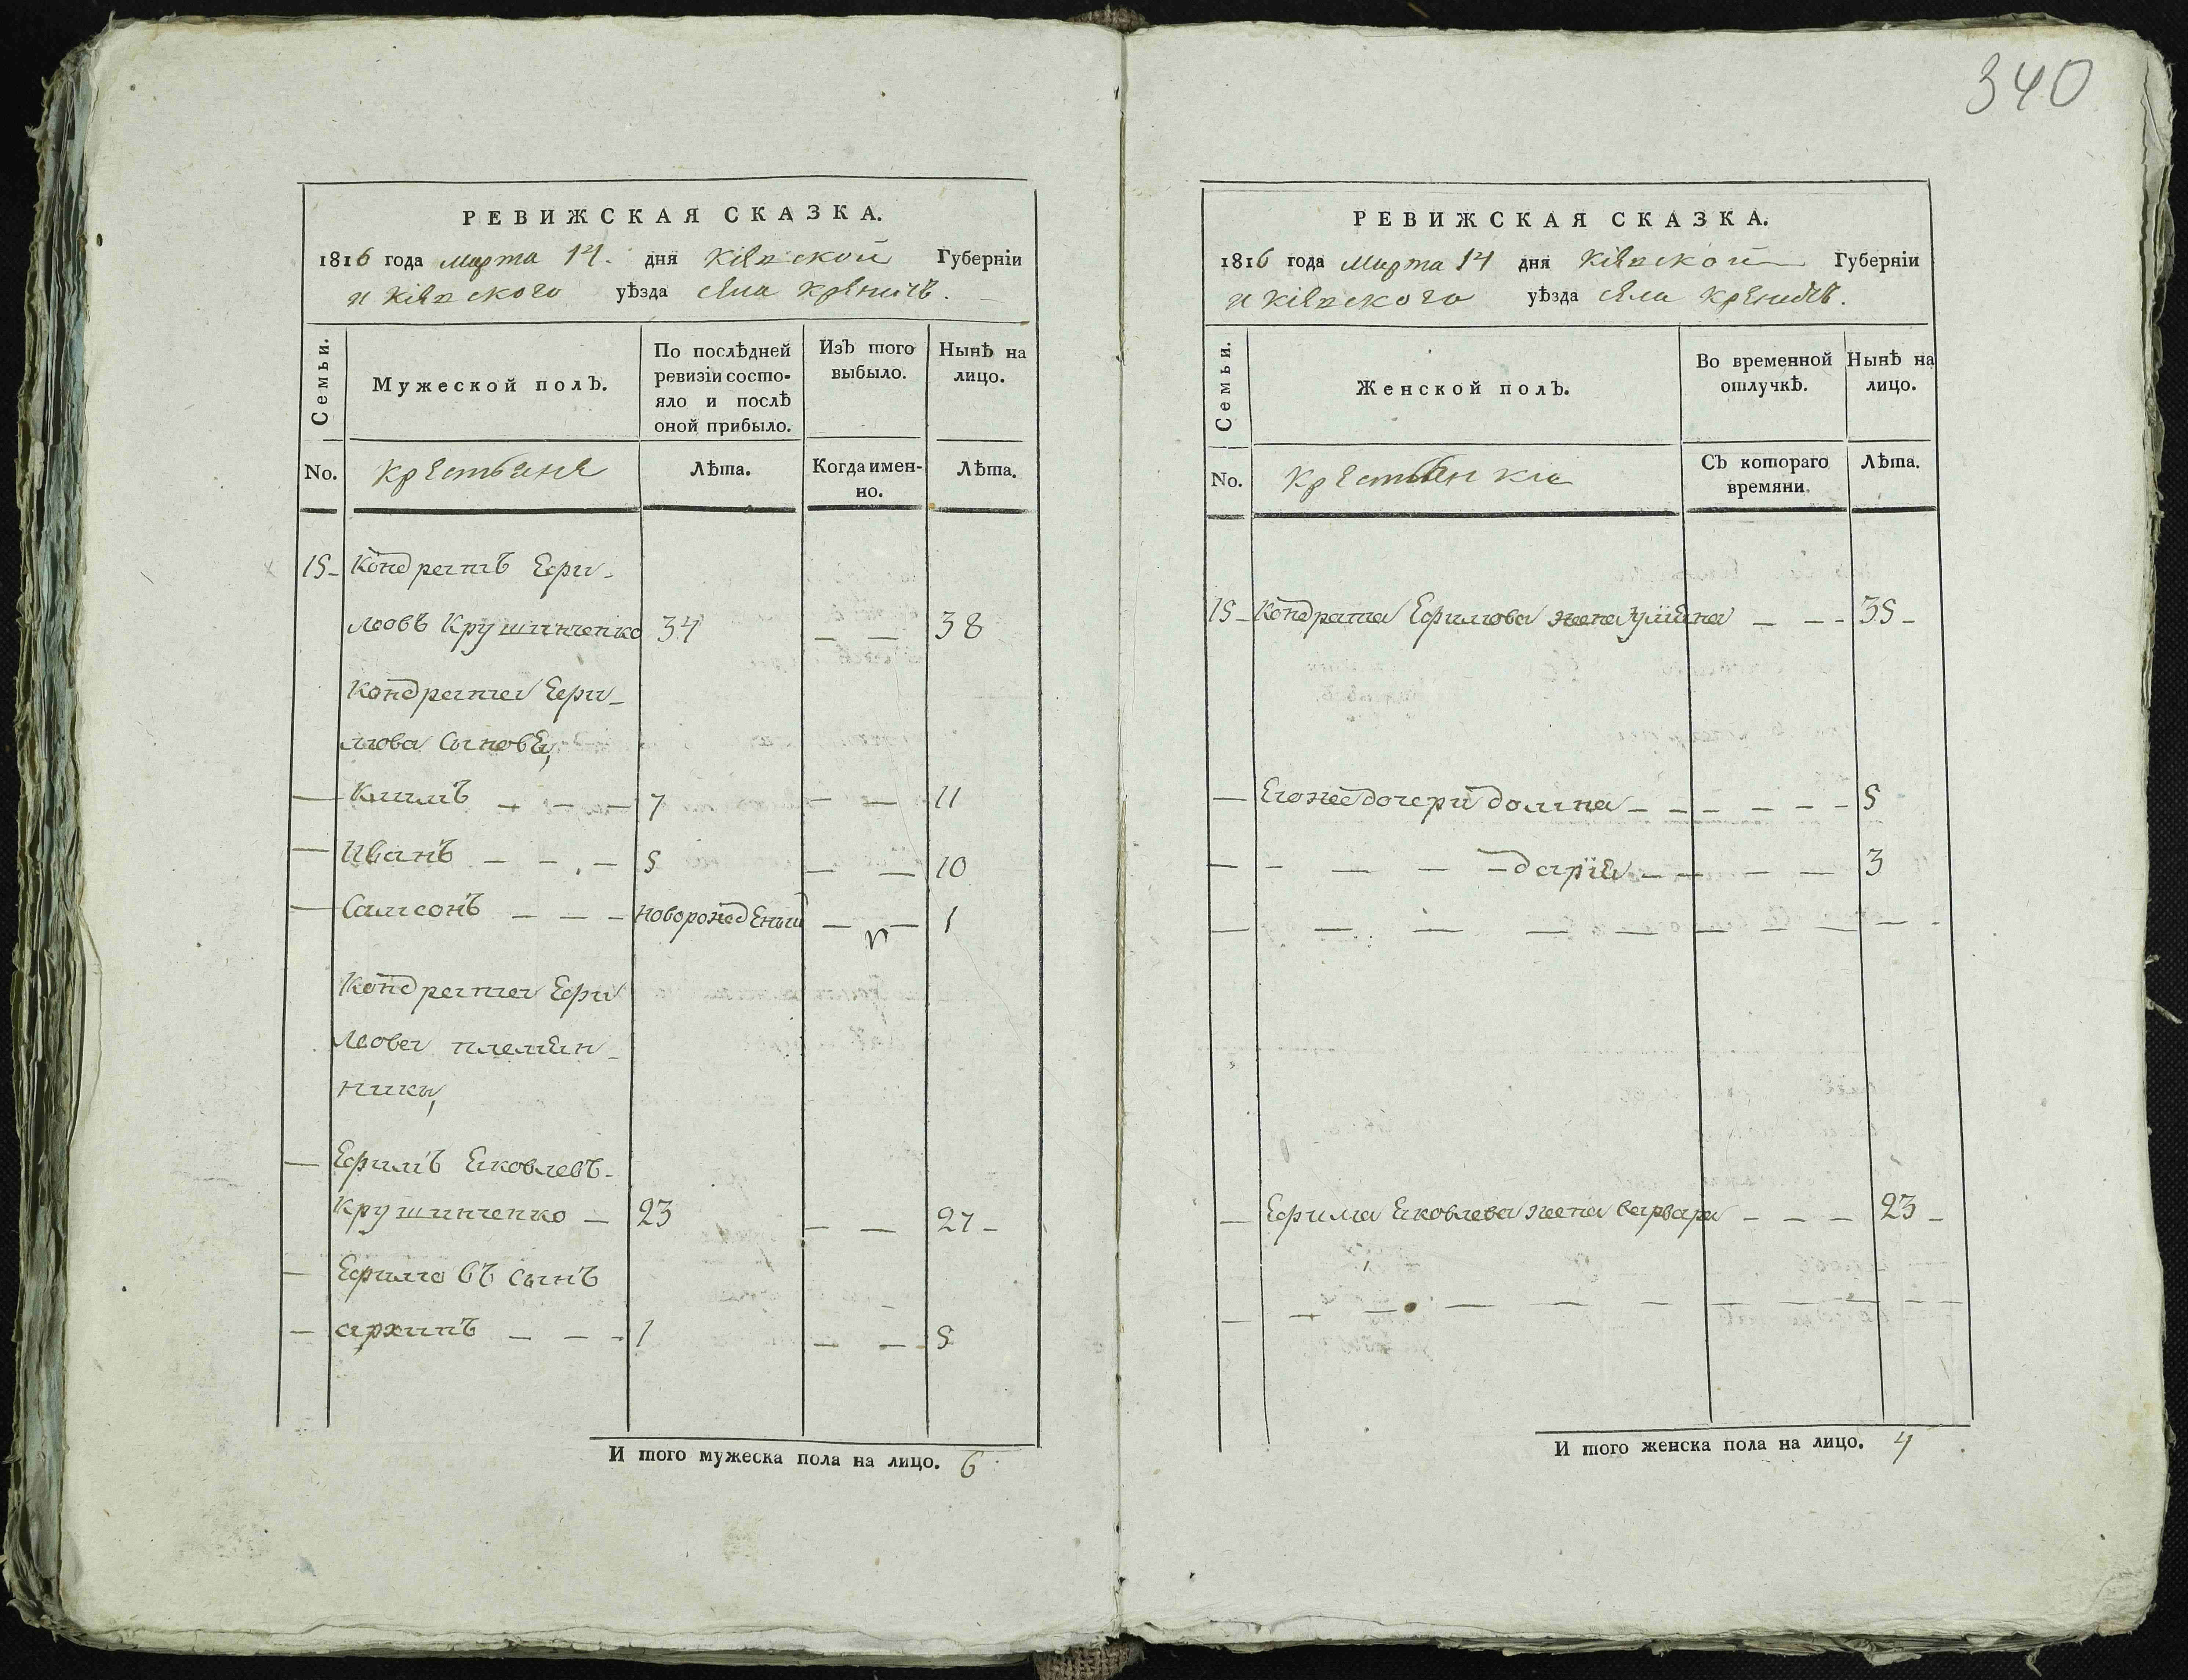 340
РЕВИЖСКАЯ СКАЗКА.
1816 года марта 14. дня Кіевской Губерніи
и Кіевского уѣзда села Креничъ.
Семьи.
Мужеской полъ.
По послѣдней ревизіи состо-
яло и послѣ
оной прибыло.
Изъ того
выбыло.
Нынѣ на
лицо.
No.
Крестьяне
Лѣта.
Когда имен-
но.
Лѣта.
15 - Кондратъ Ефи-
мовъ Крушинченко 34 — — 38
Кондрата Ефи-
мова сыновья,
— Климъ — — — 7 — — 11
— Иванъ — — — 5 — — 10
— Самсонъ — — — новорожденый — — 1
Кондрата Ефи
мова племян-
ники,
— Ефимъ Яковлевъ -
Крушинченко — 23 — — 27 -
— Ефимовъ сынъ
— архипъ — — - 1 — — 5
И того мужеска пола на лицо. 6
РЕВИЖСКАЯ СКАЗКА.
1816 года Марта 14 дня Кіевской Губерніи
и Кіевского уѣзда села Креничъ.
Семьи.
Женской полъ.
Во временной
отлучкѣ.
Нынѣ на
лицо.
No.
Крестьянки
Съ котораго
времяни.
Лѣта.
15 - Кондрата Ефимова жена Уліяна — — - 35 -
— Егоже дочери домна — — — — — - 5
— — — — — дарія — — — — 3
— Ефима Яковлева жена варвара — — — 23 -
И того женска пола на лицо. 4